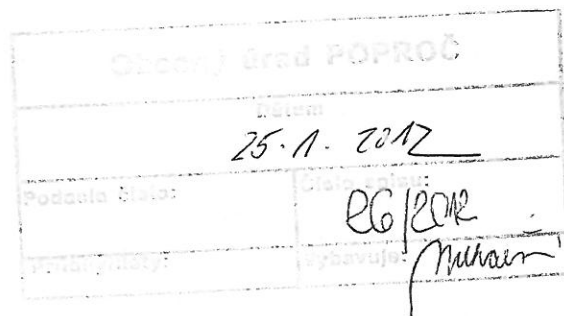 Obecný úrad POPROČ
Dátum
25.1.2012
Podacie číslo: Číslo spisu:
26/2012
Prílohy/listy: Vybavuje: